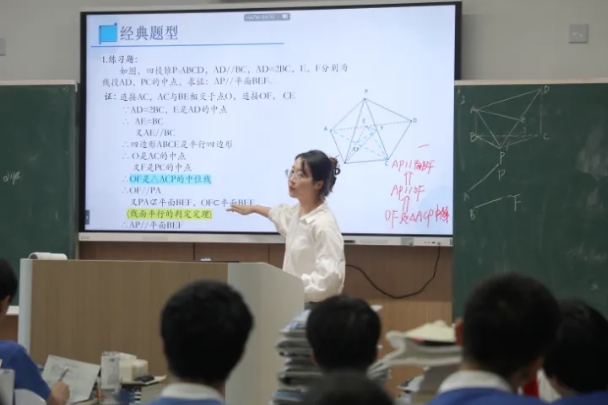 经典题型
1.练习题:
如图,四棱锥P-ABCD,AD//BC,AD=2BC,E、F分别为
线段AD、PC的中点。求证:AP//平面BEF。
证:连接AC,AC与BE相交于点O,连接OF、CE
∵AD=2BC,E是AD的中点
∴ AE=BC
又AE//BC
∴四边形ABCE是平行四边形
∴O是AC的中点
又F是PC的中点
∴OF是△ACP的中位线
∴OF//PA
又PA⊄平面BEF,OF⊂平面BEF
(线面平行的判定定理)
∴AP//平面BEF
P
A
D
B
C
AP//
AP//OF
OF是△ACP中
D
B
C
P
A
B
F